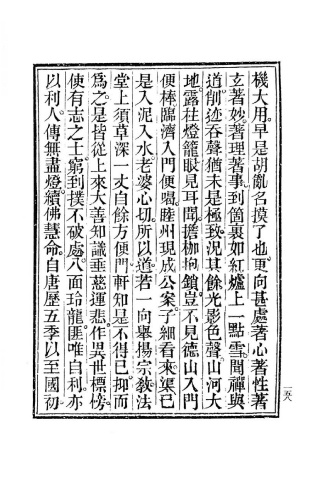 機大用。早是胡亂名摸了也。更向甚處著心著性著
玄著妙著理著事。到箇裏如紅爐上一點雪。間禪與
道削迹吞聲猶未是極致。況其餘光影色聲。山河大
地。露柱燈籠。眼見耳聞。擔枷抱鎖。豈不見德山入門
便棒。臨濟入門便喝。睦州現成公案。子細看來。渠已
是入泥入水老婆心切。所以道。若一向舉揚宗教法
堂上須草深一丈自餘方便門軒知是不得已。抑而
爲之。是皆從上來大善知識垂慈運悲。作異世標榜。
使有志之士。窮到撲不破處。八面玲龍匪唯自利。亦
以利人。傳無盡燈。續佛慧命。自唐歷五季以至國初
一五八